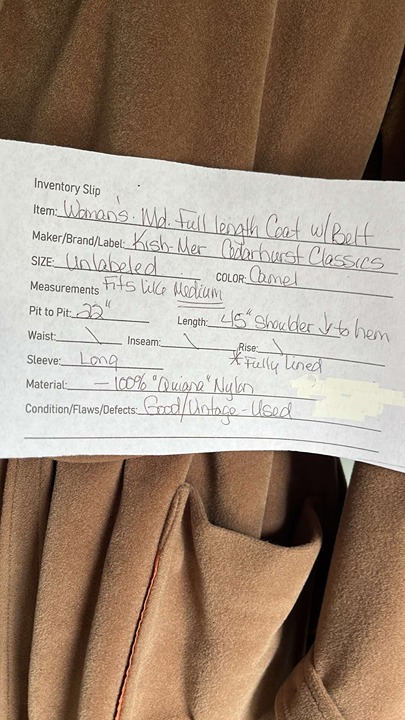 Inventory Slip
Item: Woman's. Md. Full length Coat w/Belt
Maker/Brand/Label: Kish-Mer Cedarhurst Classics
SIZE: Unlabeled COLOR: Camel
Measurements Fits like Medium
Pit to Pit: 22" Length: 45" Shoulder ↓ to hem
Waist: \ Inseam: \ Rise: \
Sleeve: Long * Fully Lined
Material: — 100% "Quiana" Nylon
Condition/Flaws/Defects: Good/Vintage - Used